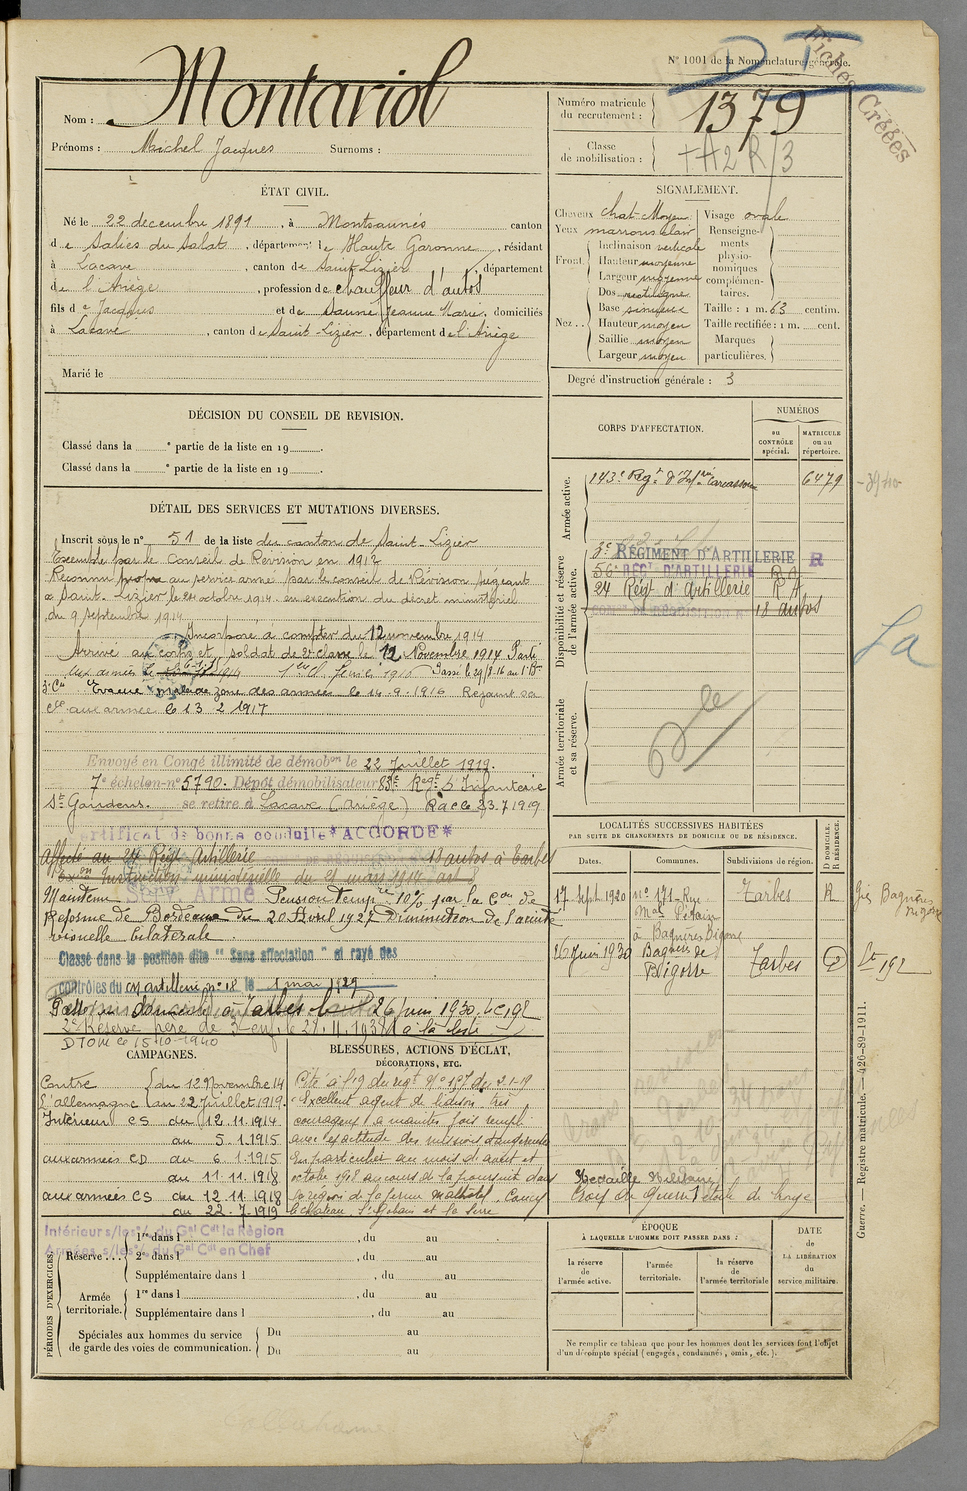 N° 1001 de la Nomenclature générale.
Fiches Créées
Nom : Montariol
Prénoms : Michel Jacques Surnoms :
Numéro matricule du recrutement : 1379
Classe de mobilisation :
ÉTAT CIVIL.
Né le 22 decembre 1891, à Montsaunés canton
de Salies du Salat, département de Haute Garonne, résidant
à Lacave, canton de Saint Lizier, département
de l'Ariège, profession de chauffeur d'autos
fils de Jacques et de Saune Jeanne Marie, domiciliés
à Lacave, canton de Saint-Lizier, département de l'Ariège
Marié le
SIGNALEMENT.
Cheveux chat. Moyen Visage ovale
Yeux marrons clair
Front. Inclinaison verticale
Hauteur moyenne
Largeur moyenne
Nez.. Dos rectiligne
Base sinueuse
Hauteur moyen
Saillie moyen
Largeur moyen
Renseignements physionomiques complémentaires.
Taille : 1 m. 63 centim.
Taille rectifiée : 1 m. cent.
Marques particulières.
Degré d'instruction générale : 3
DÉCISION DU CONSEIL DE REVISION.
Classé dans la e partie de la liste en 19 .
Classé dans la e partie de la liste en 19 .
DÉTAIL DES SERVICES ET MUTATIONS DIVERSES.
Inscrit sous le n° 51 de la liste du canton de Saint-Lizier
Exempté par le Conseil de Révision en 1912
Reconnu propre au service armé par le conseil de Révision siégeant
à Saint-Lizier le 24 octobre 1914 en execution du décret ministériel
du 9 septembre 1914
Incorporé à compter du 12 novembre 1914
Arrivé au corps et soldat de 2e classe le 12 Novembre 1914 Parti
aux armées le 1914 Passé le 29/8.16 au
3e Cie Evacué malade zone des armées le 14.9.1916 Rejoint sa
Cie aux armées le 13 2 1917
Envoyé en Congé illimité de démobon le 22 Juillet 1919.
7e échelon-n° 5790. Dépôt démobilisateur 83e Regt d'Infanterie
St Gaudens. se retire à Lacave (Ariège) 23.7.1919
Certificat de bonne conduite "ACCORDÉ"
Affecté au 24 Régt Artillerie 18 autos à Tarbes
Instruction ministérielle du 21 mars 1914
Maintenu Service Armé Pension Tempre 10% par la Con de
Réforme de Bordeaux du 20 Avril 1927 Diminution de l'acuité
visuelle bilatérale
Classé dans la position dite "Sans affectation" et rayé des
contrôles du artillerie n° 18 le 1 mai 1929
domicile à Tarbes le 26 juin 1930.
2e Réserve père de 3 enf
CORPS D'AFFECTATION.
NUMÉROS
au CONTRÔLE spécial.
MATRICULE ou au répertoire.
Armée active.
143e Regt d'Infrie Carcassonne 6479
Disponibilité et réserve de l'armée active.
3e RÉGIMENT D'ARTILLERIE R
56e REGT D'ARTILLERIE
24 Régt d'Artillerie R A
18 autos
Armée territoriale et sa réserve.
LOCALITÉS SUCCESSIVES HABITÉES
PAR SUITE DE CHANGEMENTS DE DOMICILE OU DE RÉSIDENCE.
Dates. Communes. Subdivisions de région. D DOMICILE. R RÉSIDENCE.
17 Sept. 1920 n° 171 Rue Mal Pétain à Bagnères Bigorre Tarbes R
26 Juin 1930 Bagnères de Bigorre Tarbes
CAMPAGNES.
Contre l'allemagne du 12 Novembre 14
au 22 Juillet 1919.
Intérieur CS du 12.11.1914
au 5.1.1915
aux armées CD du 6.1.1915
au 11.11.1918
aux armées CS du 12.11.1918
au 22.7.1919
Intérieur s/les o/ du Gal Cdt la Région
Armées s/les o/ du Gal Cdt en Chef
BLESSURES, ACTIONS D'ÉCLAT,
DÉCORATIONS, ETC.
Cité à l'o du regt N° 197 du 2.1.19
"Excellent agent de liaison très
courageux a maintes fois rempli
avec exactitude des missions dangereuses
En particulier au mois d'aout et
octobre 1918 au cours de la poursuite dans
la région de la ferme Coucy
le château, St Gobain et la Serre
Médaille Militaire
Croix de Guerre étoile de bronze
PÉRIODES D'EXERCICES.
Réserve... 1re dans l , du au
2e dans l , du au
Supplémentaire dans l , du au
Armée territoriale. 1re dans l , du au
Supplémentaire dans l , du au
Spéciales aux hommes du service de garde des voies de communication. Du au
Du au
ÉPOQUE
À LAQUELLE L'HOMME DOIT PASSER DANS :
la réserve de l'armée active.
l'armée territoriale.
la réserve de l'armée territoriale
DATE de LA LIBÉRATION du service militaire.
Ne remplir ce tableau que pour les hommes dont les services font l'objet
d'un décompte spécial (engagés, condamnés, omis, etc.).
Guerre. — Registre matricule. — 426-89-1911.